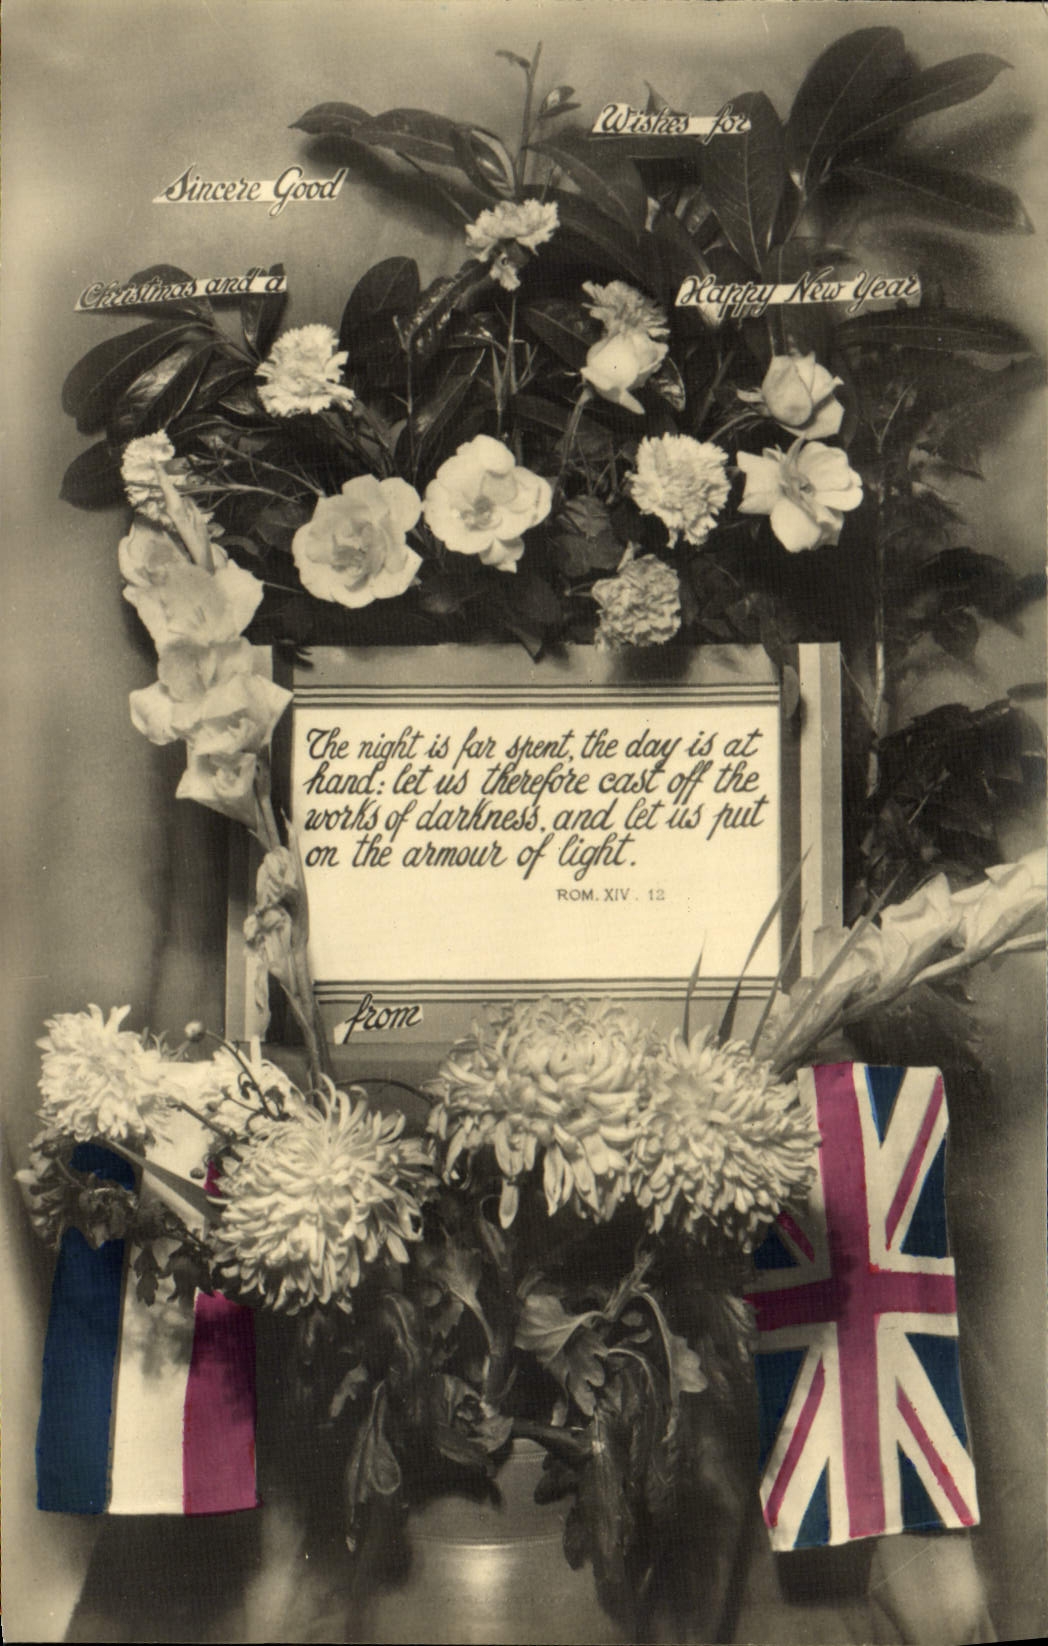 Sincere Good
Wishes for
Christmas and a
Happy New Year
The night is far spent, the day is at
hand: let us therefore cast off the
works of darkness, and let us put
on the armour of light.
ROM. XIV. 12
from